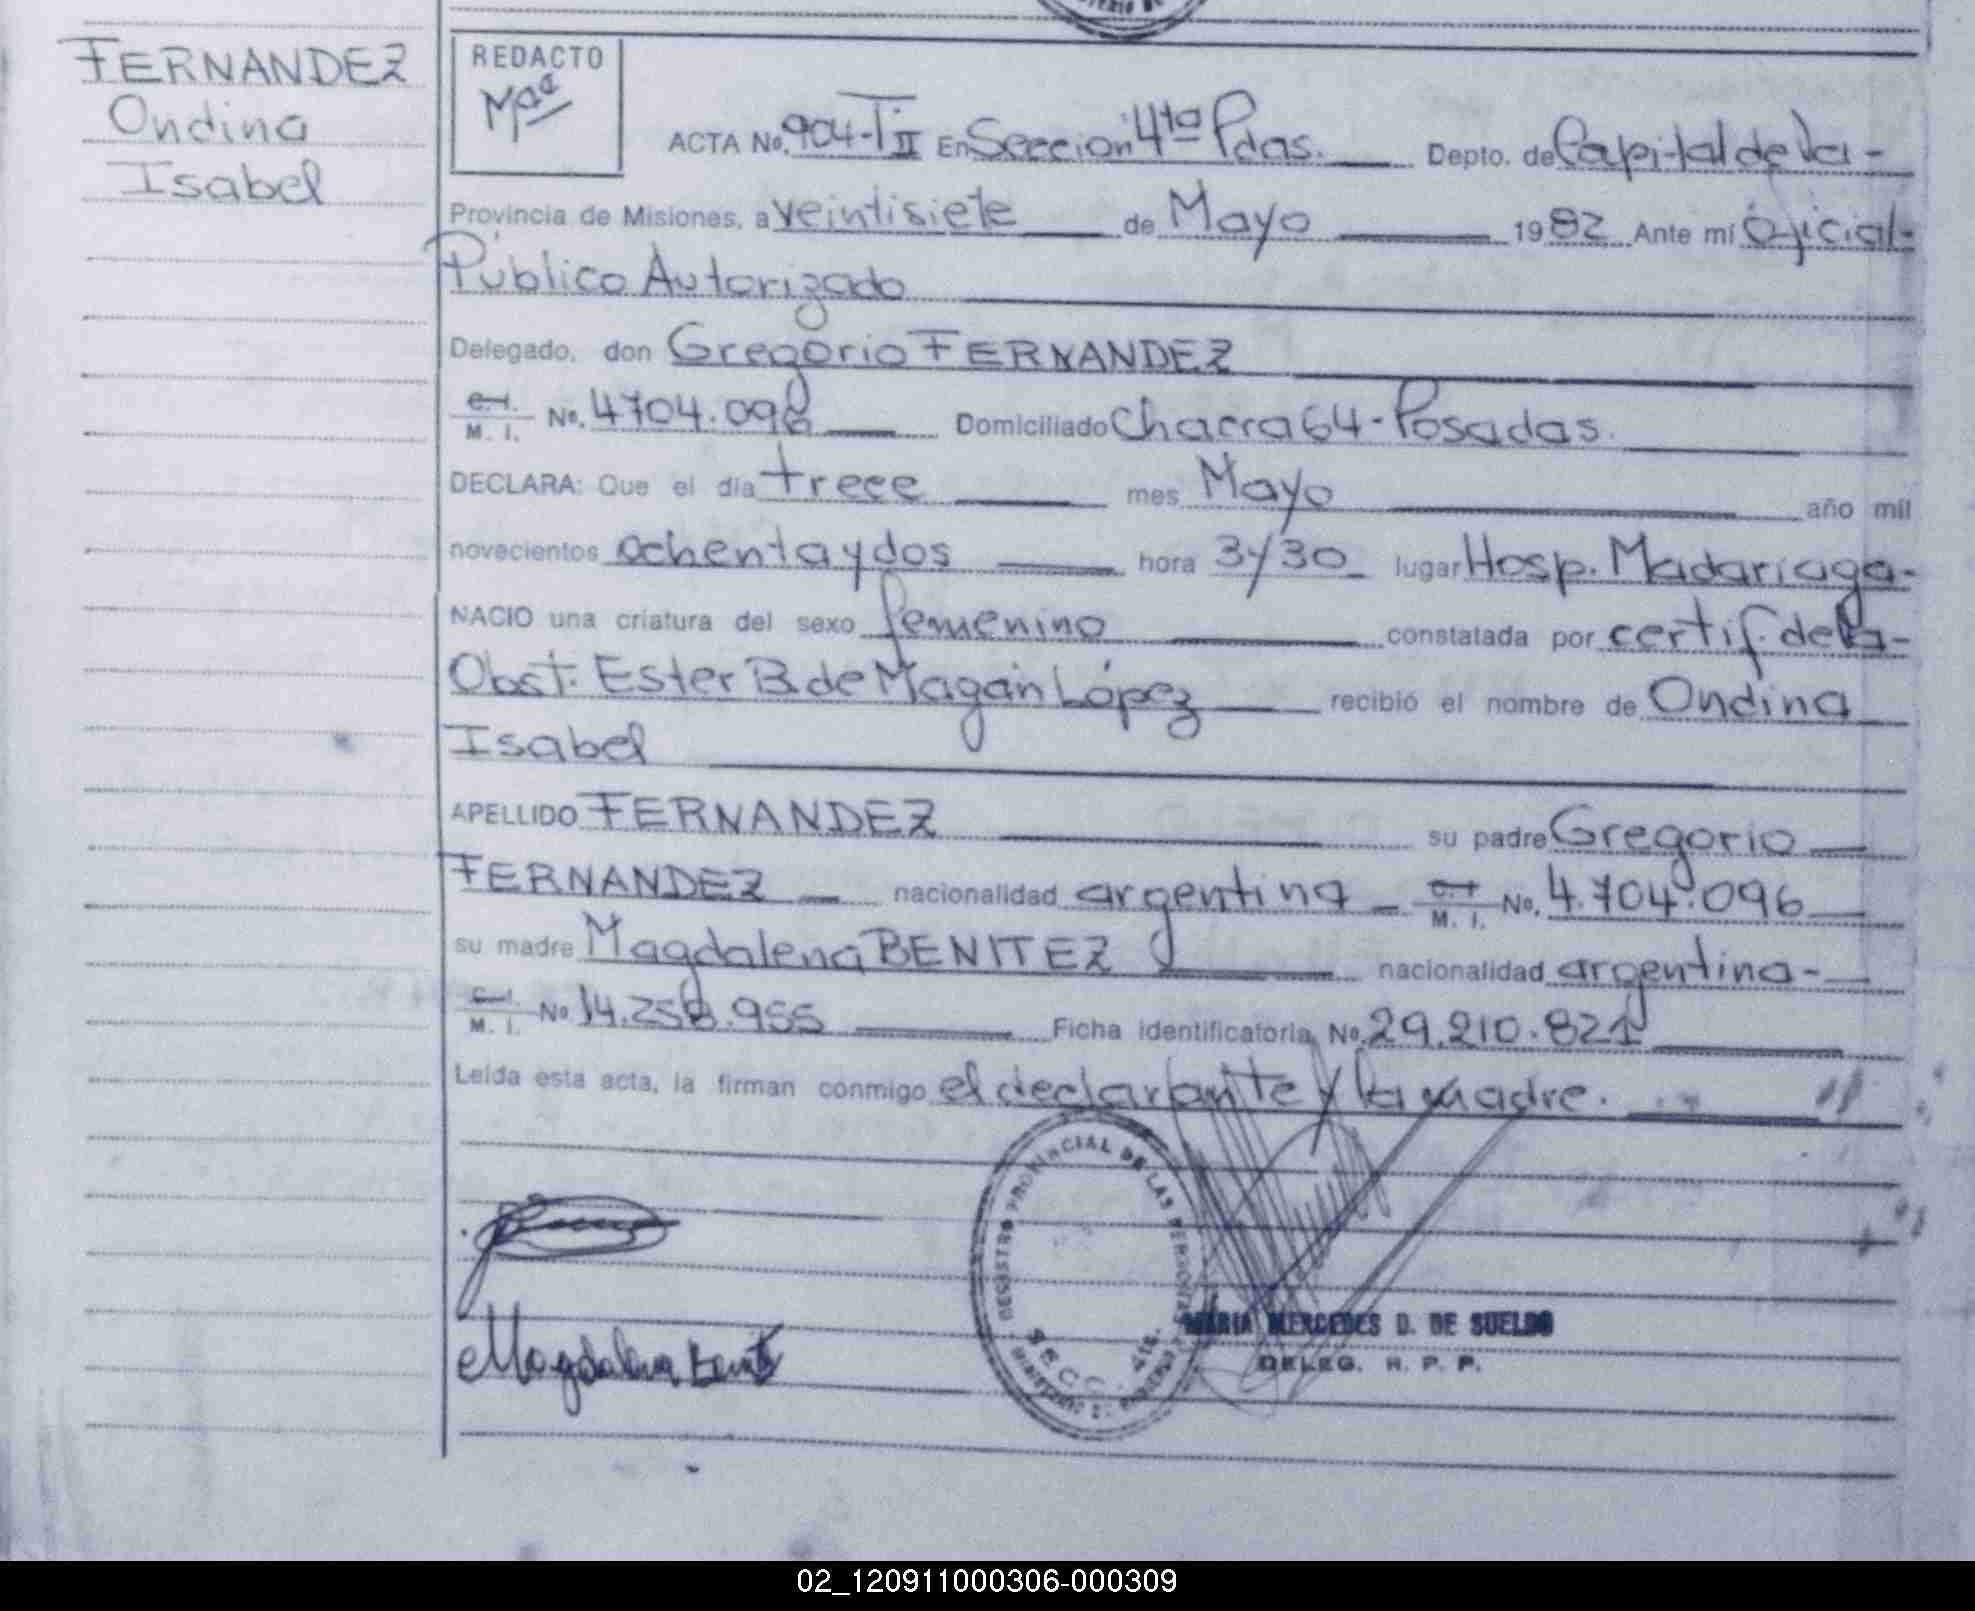 FERNANDEZ
Ondina
Isabel
REDACTO
Mª
ACTA No. 904-T II En Sección 4ta Pdas. Depto. de Capital de la-
Provincia de Misiones, a veintisiete de Mayo 1982 Ante mí Oficial-
Público Autorizado
Delegado, don Gregorio FERNANDEZ
C. I.
M. I. No. 4704.096 Domiciliado Chacra 64-Posadas.
DECLARA: Que el día trece mes Mayo año mil
novecientos ochenta y dos hora 3y30 lugar Hosp. Madariaga-
NACIO una criatura del sexo femenino constatada por certif. de la-
Obst. Ester B. de Magán López recibió el nombre de Ondina
Isabel
APELLIDO FERNANDEZ su padre Gregorio
FERNANDEZ nacionalidad argentina C. I. M. I. No. 4.704.096
su madre Magdalena BENITEZ nacionalidad argentina-
C. I.
M. I. No 14.258.955 Ficha identificatoria No. 29.210.821
Leída esta acta, la firman conmigo el declarante y la madre.
REGISTRO PROVINCIAL DE LAS PERSONAS
SECC. 4ta.
Magdalena Benit
MARIA MERCEDES D. DE SUELDO
DELEG. R. P. P.
02_120911000306-000309